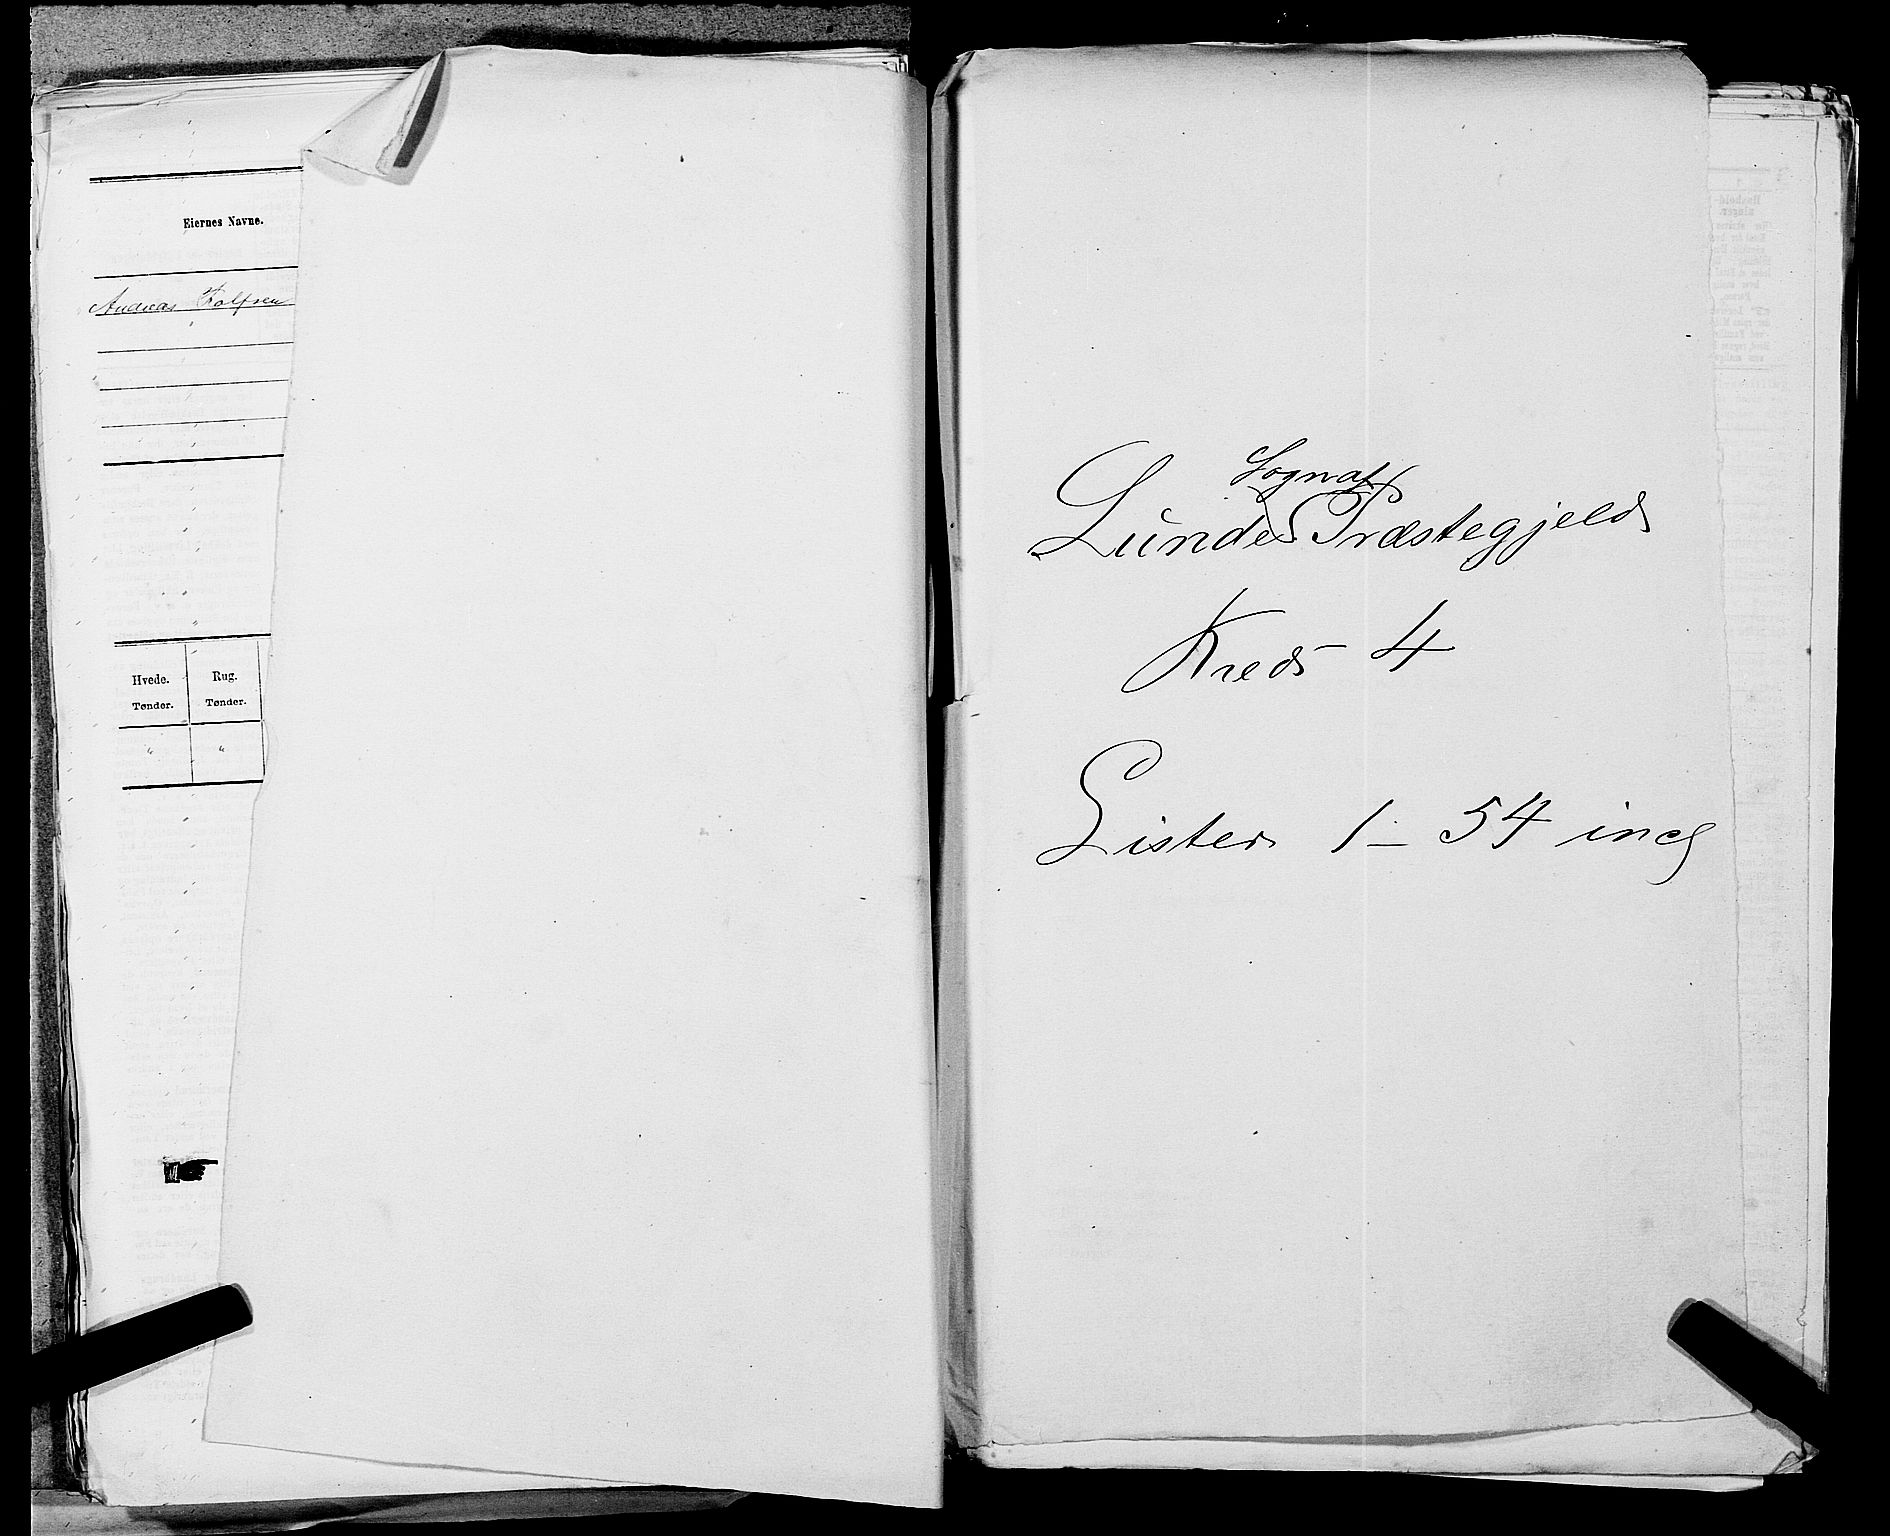 Eiernes Navne.
Andreas
Hvede. Rug.
Tønder. Tønder.
" "
Sognaf
Lunde Præstegjeld
Kreds 4
Lister 1 - 54 incl